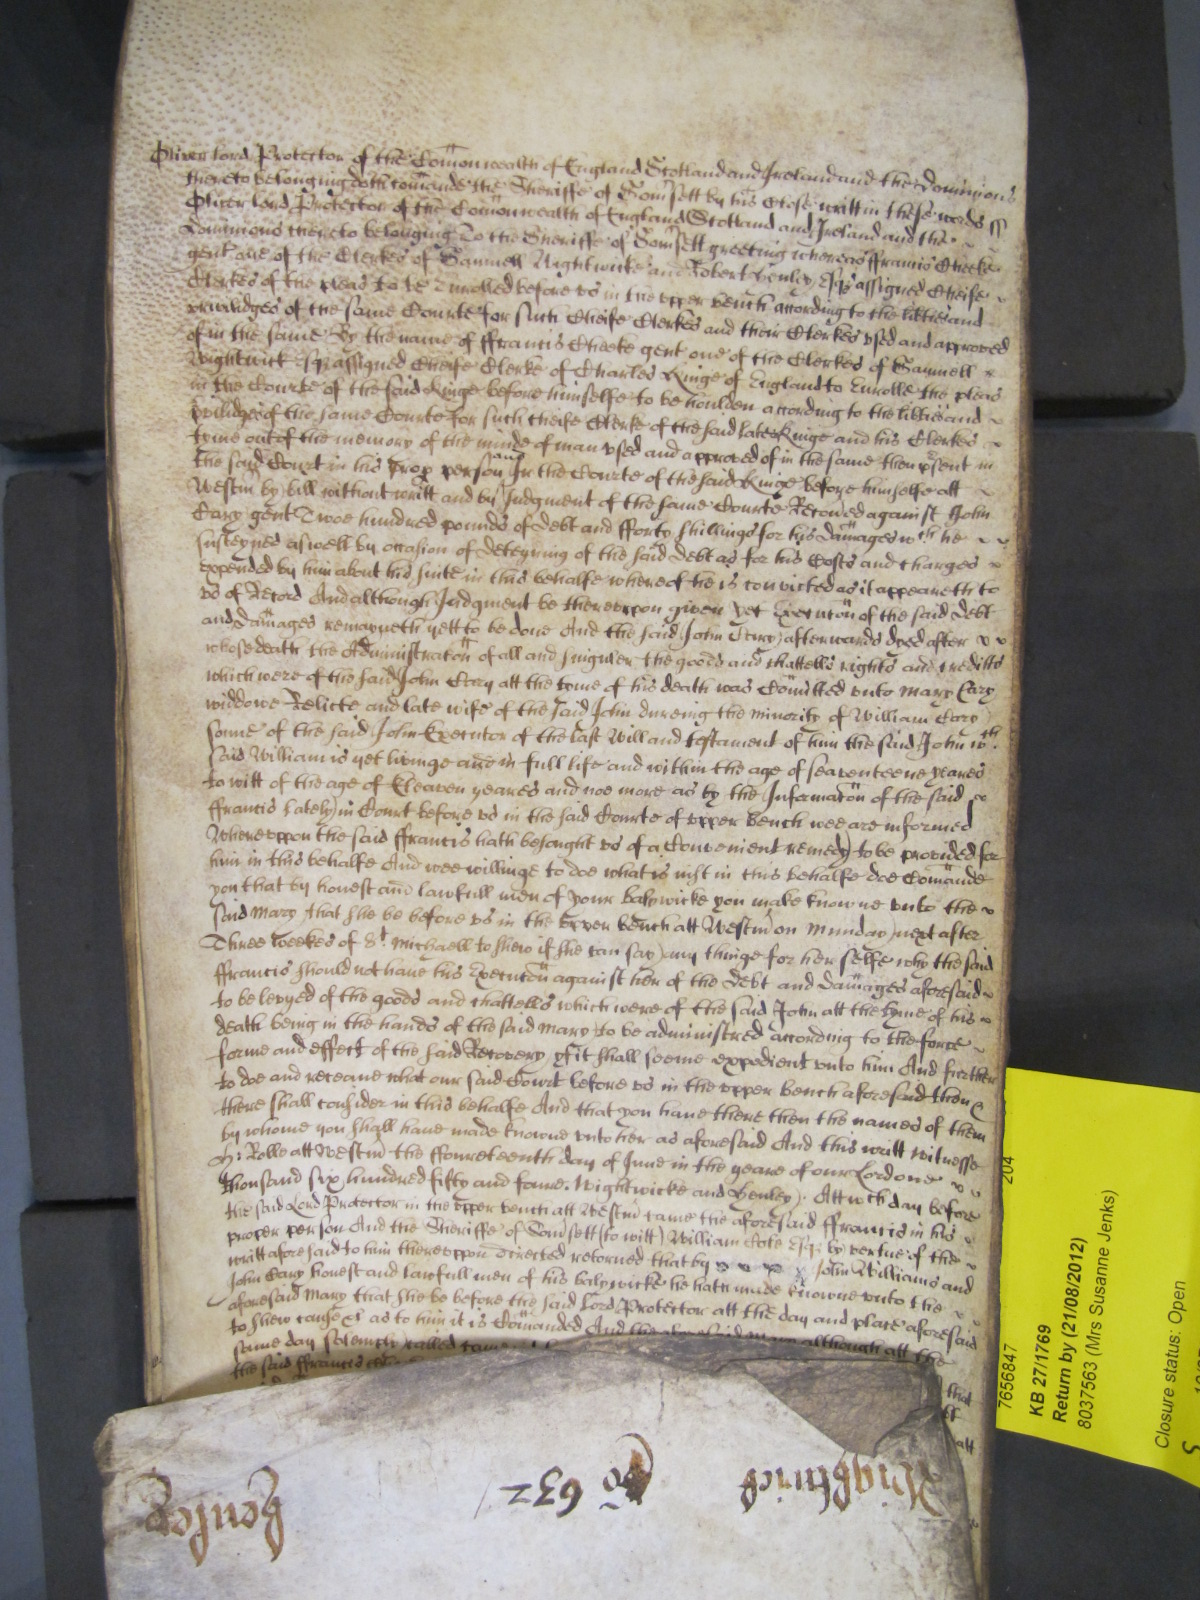 Oliver lord Protector of the Comonwealth of England Scotland and Ireland and the Dominions
thereto belonging doth comande the Sheriffe of Somsett by his Close writt in these words ss
Oliver Lord Protector of the Comonwealth of England Scotland and Ireland and the
Dominions thereto belonging To the Sheriffe of Somsett greeting whereas ffrancis Cheeke
gent one of the Clerkes of Samuell Wightwicke and Robert Henley Esqs assigned Cheife
Clerkes of the pleas to be Enrolled before vs in the vpper bench according to the libties and
priviledges of the same Courte for such Cheife Clerkes and their Clerkes vsed and approved
of in the same By the name of ffrancis Cheeke gent one of the Clerkes of Samuell
Wightwick Esq assigned Cheife Clerke of Charles Kinge of England to Enrolle the pleas
in the Courte of the said Kinge before himselfe to be houlden according to the libties and
priviledges of the same Courte for such cheife Clerke of the said late Kinge and his Clerkes
tyme out of the memory of the minde of man vsed and approved of in the same then psent in
the said Court in his prop person and In the Courte of the said Kinge before himselfe att
Westm by bill without writt and by Judgment of the same Courte Recoved against John
Cary gent Twoe hundred pounds of debt and fforty shillings for his damages wch he
susteyned aswell by occasion of deteyning of the said debt as for his Costs and charges
expended by him about his suite in this behalfe whereof he is convicted as it appeareth to
vs of Record And although Judgment be therevppon given yet Execution of the said debt
and damages remayneth yett to be done And the said John Cary afterwards dyed after
whose death the Administration of all and singuler the goods and chattells rights and creditts
which were of the said John Cary att the tyme of his death was Comitted vnto Mary Cary
widdowe Relicte and late wife of the said John dureing the minority of William Cary
sonne of the said John Executor of the last Will and testament of him the said John wch
said William is yet livinge and in full life and within the age of seaventeene yeares
to witt of the age of Eleaven yeares and noe more as by the Informacon of the said
ffrancis lately in Court before vs in the said Courte of vpper bench wee are informed
Wherevppon the said ffrancis hath besought vs of a Convenient remedy to be provided for
him in this behalfe And wee willinge to doe what is iust in this behalfe doe Comande
you that by honest and lawfull men of your balywicke you make knowne vnto the
said Mary that she be before vs in the vpper bench att Westm on Munday next after
Three weekes of St Michaell to shew if she can say any thinge for her selfe why the said
ffrancis should not have his Execution against her of the debt and damages aforesaid
to be levyed of the goods and chattells which were of the said John att the tyme of his
death being in the hands of the said Mary to be administred according to the force
forme and effect of the said Recovery yf it shall seeme expedient vnto him And further
to doe and receave what our said Court before vs in the vpper bench aforesaid then &
there shall consider in this behalfe And that you have there then the names of them
by whome you shall have made knowne vnto her as aforesaid And this writt Witnesse
H: Rolle att Westm the ffoureteenth day of June in the yeare of our Lord one
thousand six hundred fifty and foure. Wightwicke and Henley. Att wch day before
the said Lord Protector in the vpper bench att Westm came the aforesaid ffrancis in his
proper person And the Sheriffe of Somsett (to witt) William Cole Esq by vertue of the
writt aforesaid to him therevppon directed returned that by John Williams and
John Cary honest and lawfull men of his balywicke he hath made knowne vnto the
aforesaid Mary that she be before the said Lord Protector att the day and place aforesaid
to shew cause &c as to him it is Comanded And the aforesaid Mary although att the
same day solemnly called came
the said ffrancis
that
att
Wightwick Ro 632 Henley
7656847 204
KB 27/1769
Return by (21/08/2012)
8037563 (Mrs Susanne Jenks)
Closure status: Open